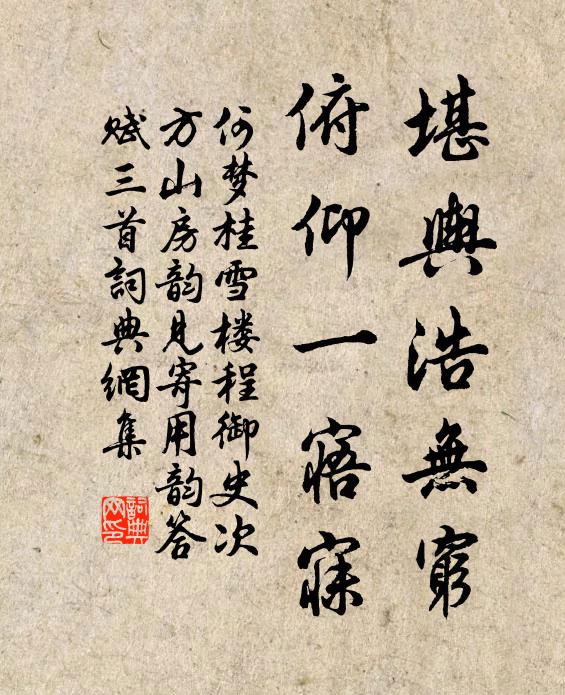 堪輿浩無窮
俯仰一寤寐
何梦桂雪楼程御史次
方山房韵見寄用韵答
赋三首詞典網集
詞典网印